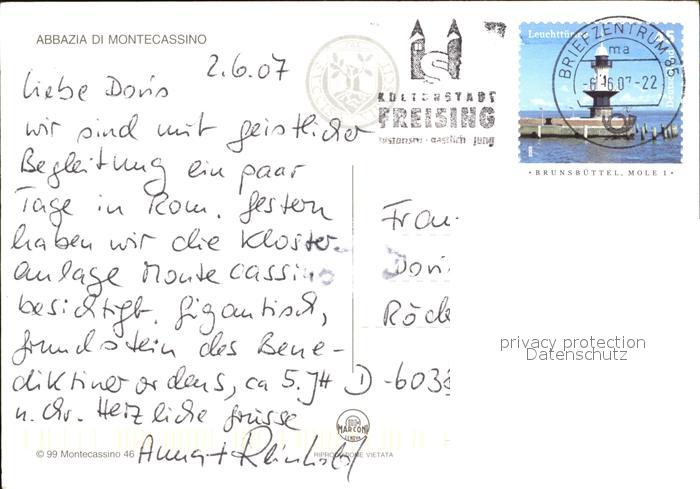 ABBAZIA DI MONTECASSINO
2.6.07
Liebe Doris
wir sind mit geistlicher
Begleitung ein paar
Tage in Rom. Gestern
haben wir die Kloster-
anlage Monte cassino
besichtigt. Gigantisch,
Grundstein des Bene-
diktinerordens, ca 5. JH
n. Chr. Herzliche Grüsse
Anna + Reinhold
© 99 Montecassino 46
RIPRODUZIONE VIETATA
MARCONI
GENOVA
KULTURSTADT
FREISING
gastlich jung
Leuchttürme
BRIEFZENTRUM 85
ma
-22
· BRUNSBÜTTEL, MOLE 1 ·
Frau
Doris
Röde
D-603
privacy protection
Datenschutz